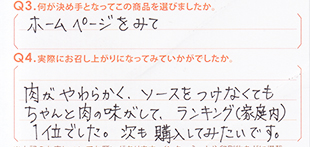 Q3.何が決め手となってこの商品を選びましたか。
ホームページをみて
Q4.実際にお召し上がりになってみていかがでしたか。
肉がやわらかく、ソースをつけなくても
ちゃんと肉の味がして、ランキング(家庭内)
1位でした。次も購入してみたいです。